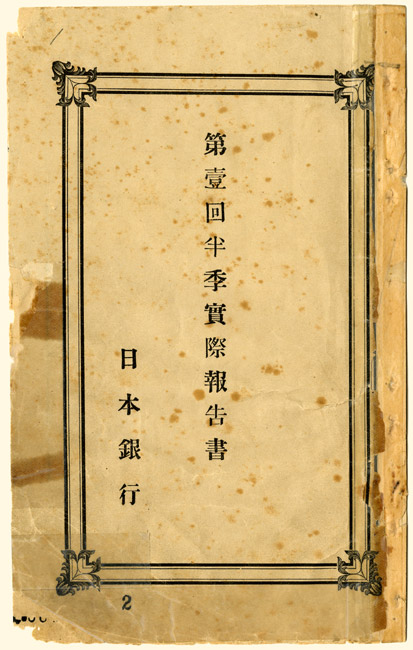 第壹回半季實際報告書
日本銀行
2